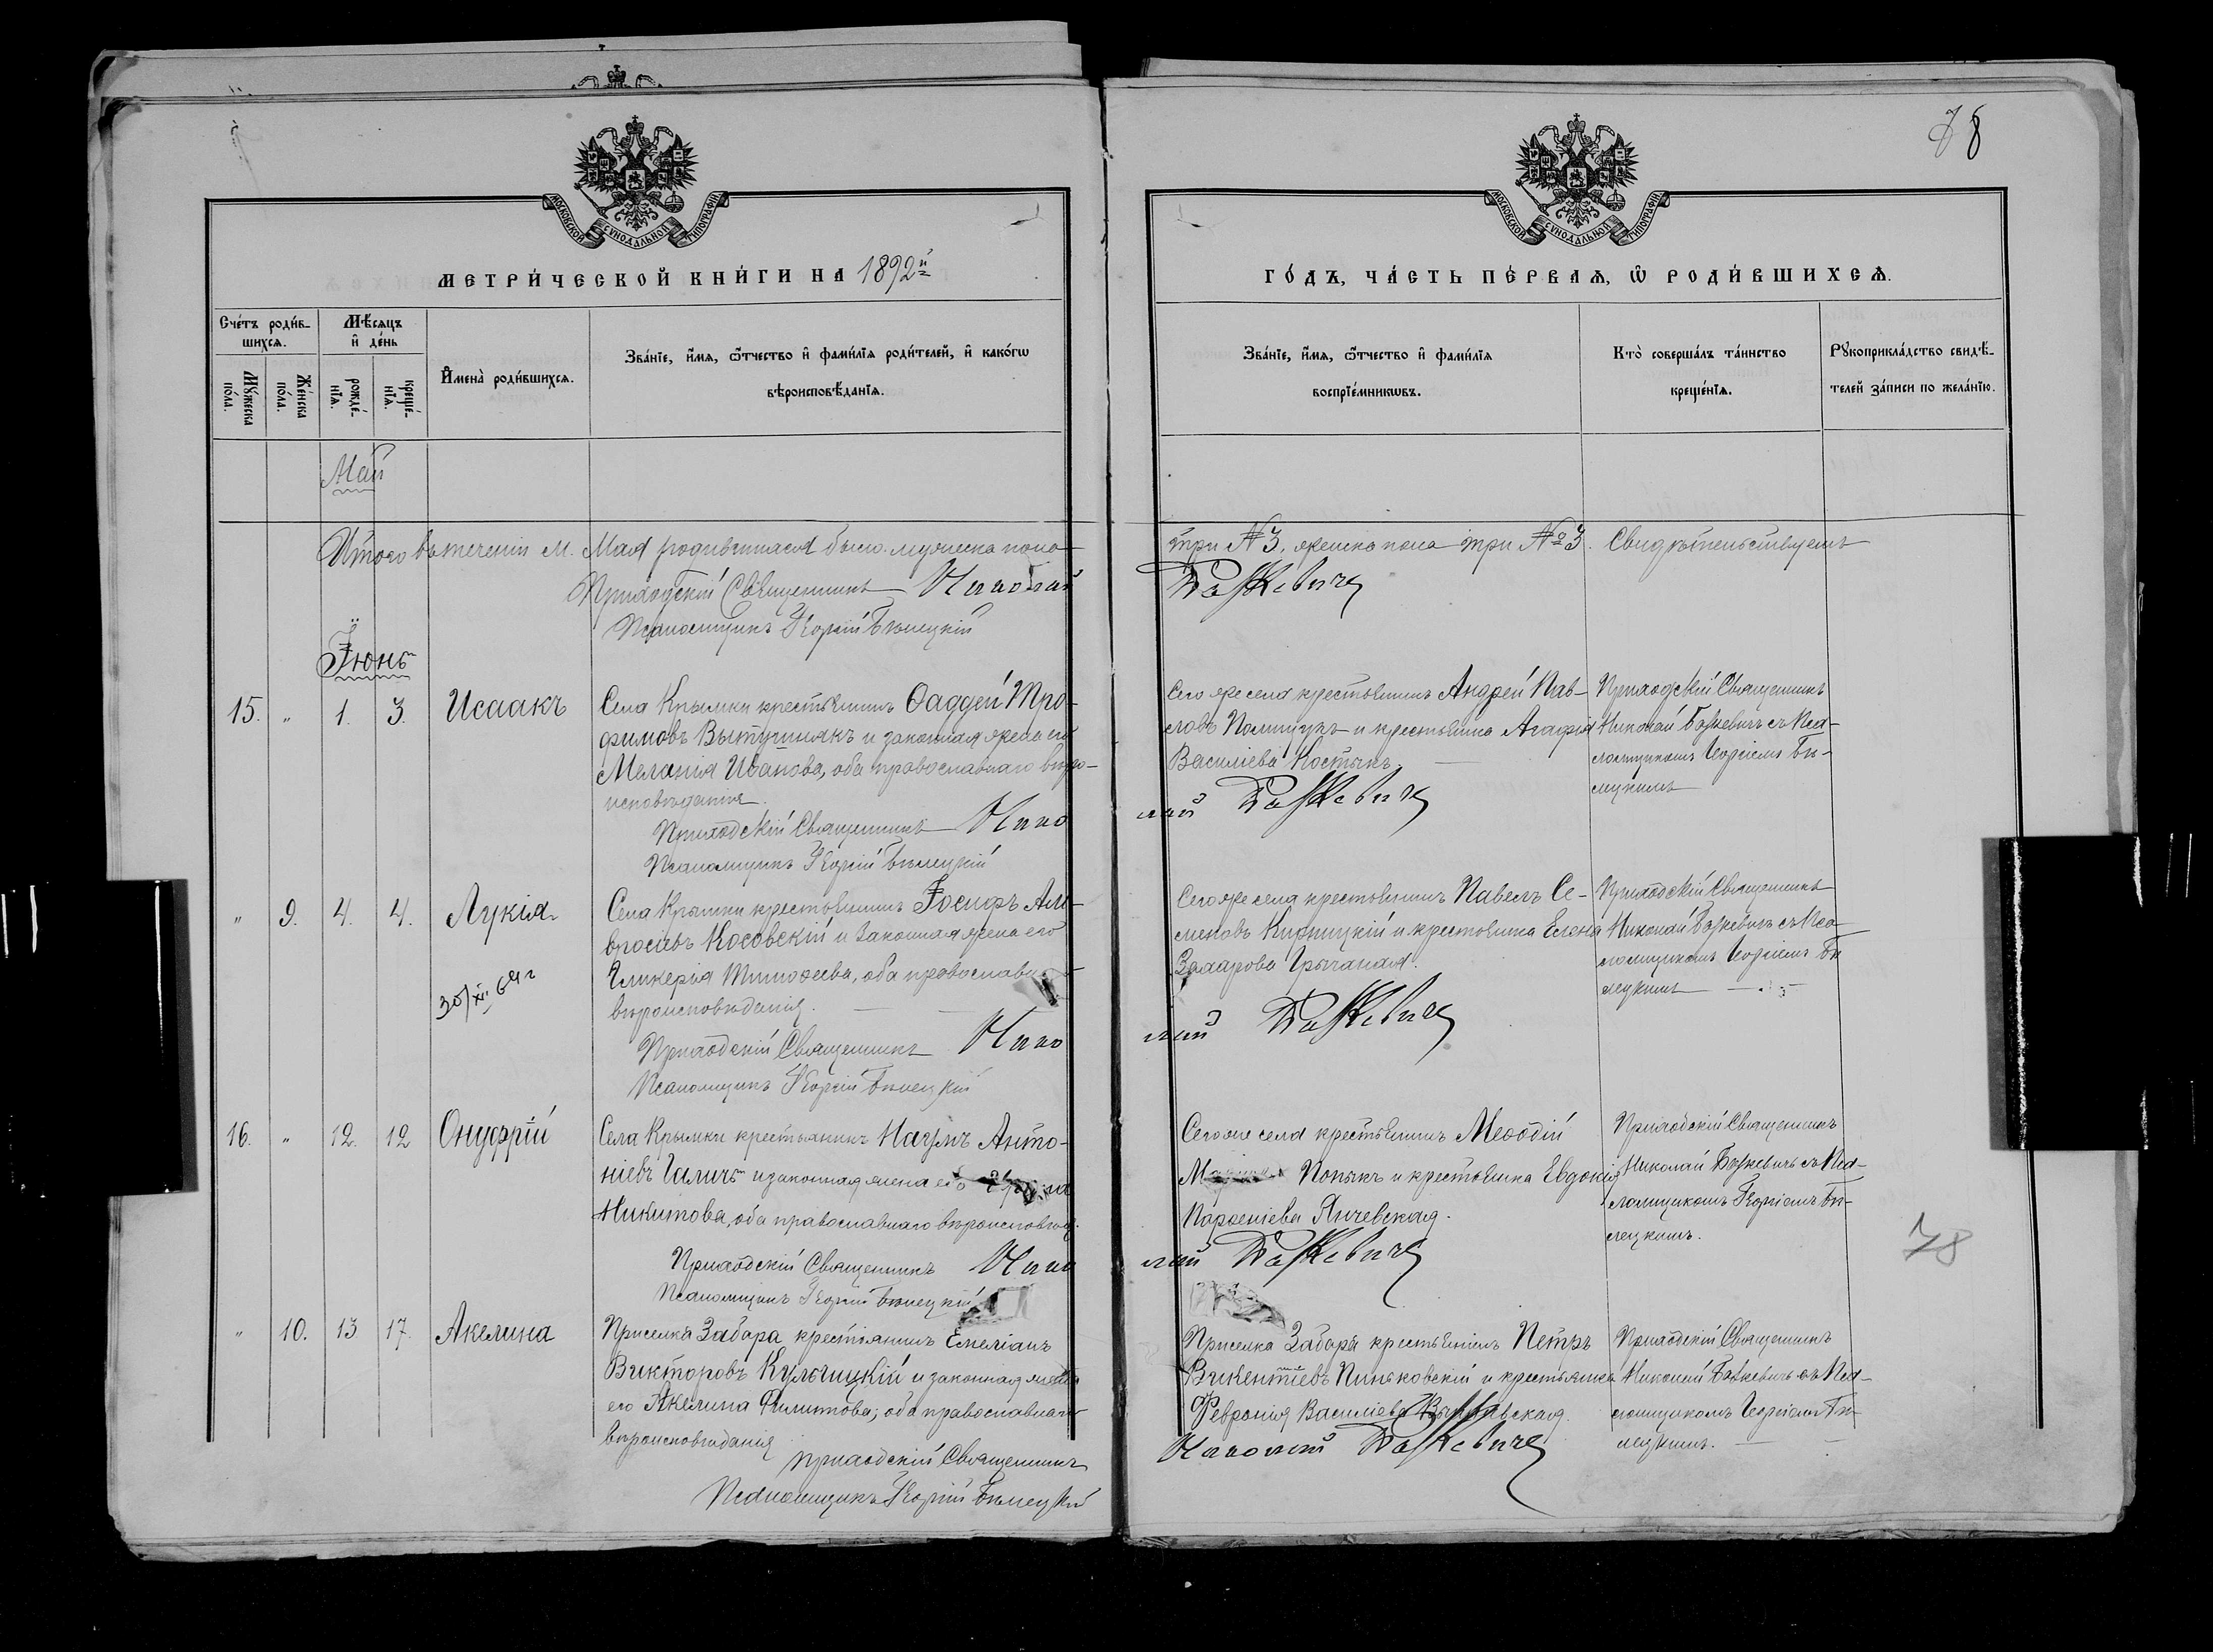 78
МОСКОВСКОЙ СУНОДАЛЬНОЙ ТИПОГРАФІИ.
МОСКОВСКОЙ СУНОДАЛЬНОЙ ТИПОГРАФІИ.
МЕТРИ́ЧЕСКОЙ КНИ́ГИ НА 1892й
ГО́ДЪ, ЧА́СТЬ ПЕ́РВАѦ, Ѡ РОДИ́ВШИХСѦ.
Сче́тъ роди́в-
шихсѧ.
Мꙋ́жеска
по́ла.
Же́нска
по́ла.
Мѣ́сѧцъ
и҆ де́нь
рожде́-
нїѧ.
креще́-
нїѧ.
И҆мена̀ роди́вшихсѧ.
Зва́нїе, и҆́мѧ, ѻ҆́тчество и҆ фами́лїѧ роди́телей, и҆ како́гѡ
вѣроисповѣ́данїѧ.
Зва́нїе, и҆́мѧ, ѻ҆́тчество и҆ фами́лїѧ
воспрїе́мникѡвъ.
Кто̀ соверша́лъ та́инство
креще́нїѧ.
Рꙋкоприкла́дство свидѣ́-
телей за́писи по жела́нїю.
Май
Итого въ теченіи м. Мая родившихся было: мужеска пола
три №3, женска пола три №3. Свидѣтельствуемъ
Приходскій Священникъ Николай
Псаломщикъ Георгій Бѣлецкій
Іюнь
15. " 1. 3. Исаакъ
Села Крымки крестьянинъ Ѳаддей Тро-
фимовъ и законная жена его
Меланія Иванова, оба православнаго вѣро-
исповѣданія.
Приходскій Священникъ Нико
Псаломщикъ Георгій Бѣлецкій
Сего же села крестьянинъ Андрей Пав-
ловъ Полищукъ и крестьянка Агафія
Василіева Костюкъ.
лай
Приходскій Священникъ
Николай съ Пса-
ломщикомъ Георгіемъ Бѣ-
лецкимъ
" 9. 4. 4. Лукія
30/XI 64 г
Села Крымки крестьянинъ Іосифъ Ам-
вросіевъ Косовскій и законная жена его
Гликерія Тимоѳеева, оба православн
вѣроисповѣданія.
Приходскій Священникъ Нико
Псаломщикъ Георгій Бѣлецкій
Сего же села крестьянинъ Павелъ Се-
меновъ и крестьянка Елена
Захарова
лай
Приходскій Священникъ
Николай съ Пса-
ломщикомъ Георгіемъ Бѣ
лецкимъ
16. " 12. 12 Онуфрій
Села Крымки крестьянинъ Наумъ Анто-
ніевъ Галичъ и законная жена его
Никитова, оба православнаго вѣроисповѣд.
Приходскій Священникъ Нико
Псаломщикъ Георгій Бѣлецкій
Сего же села крестьянинъ Меѳодій
Попыкъ и крестьянка Евдокія
Парѳеніева Янчевская.
лай
Приходскій Священникъ
Николай съ Пса-
ломщикомъ Георгіемъ Бѣ-
лецкимъ.
78
" 10. 13 17. Акелина
Приселка Забара крестьянинъ Емеліанъ
Викторовъ Кульчицкій и законная жена
его Акелина Филипова, оба православнаго
вѣроисповѣданія
Приходскій Священникъ
Псаломщикъ Георгій Бѣлецкій
Приселка Забара крестьянинъ Петръ
Викентіевъ и крестьянка
Февронія Василіева
Николай
Приходскій Священникъ
Николай съ Пса-
ломщикомъ Георгіемъ Бѣ-
лецкимъ.